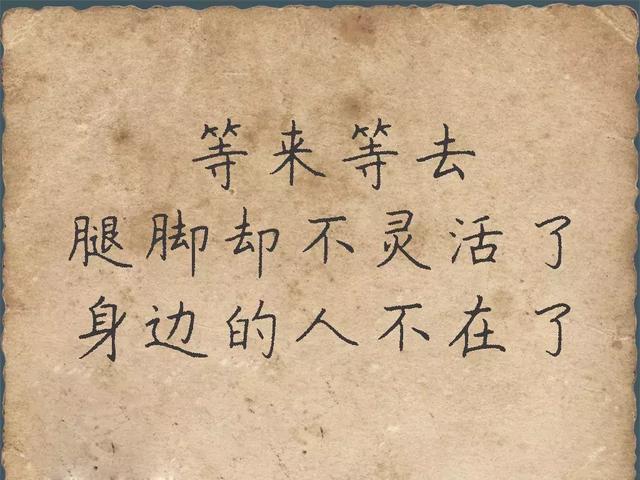 等来等去
腿脚却不灵活了
身边的人不在了